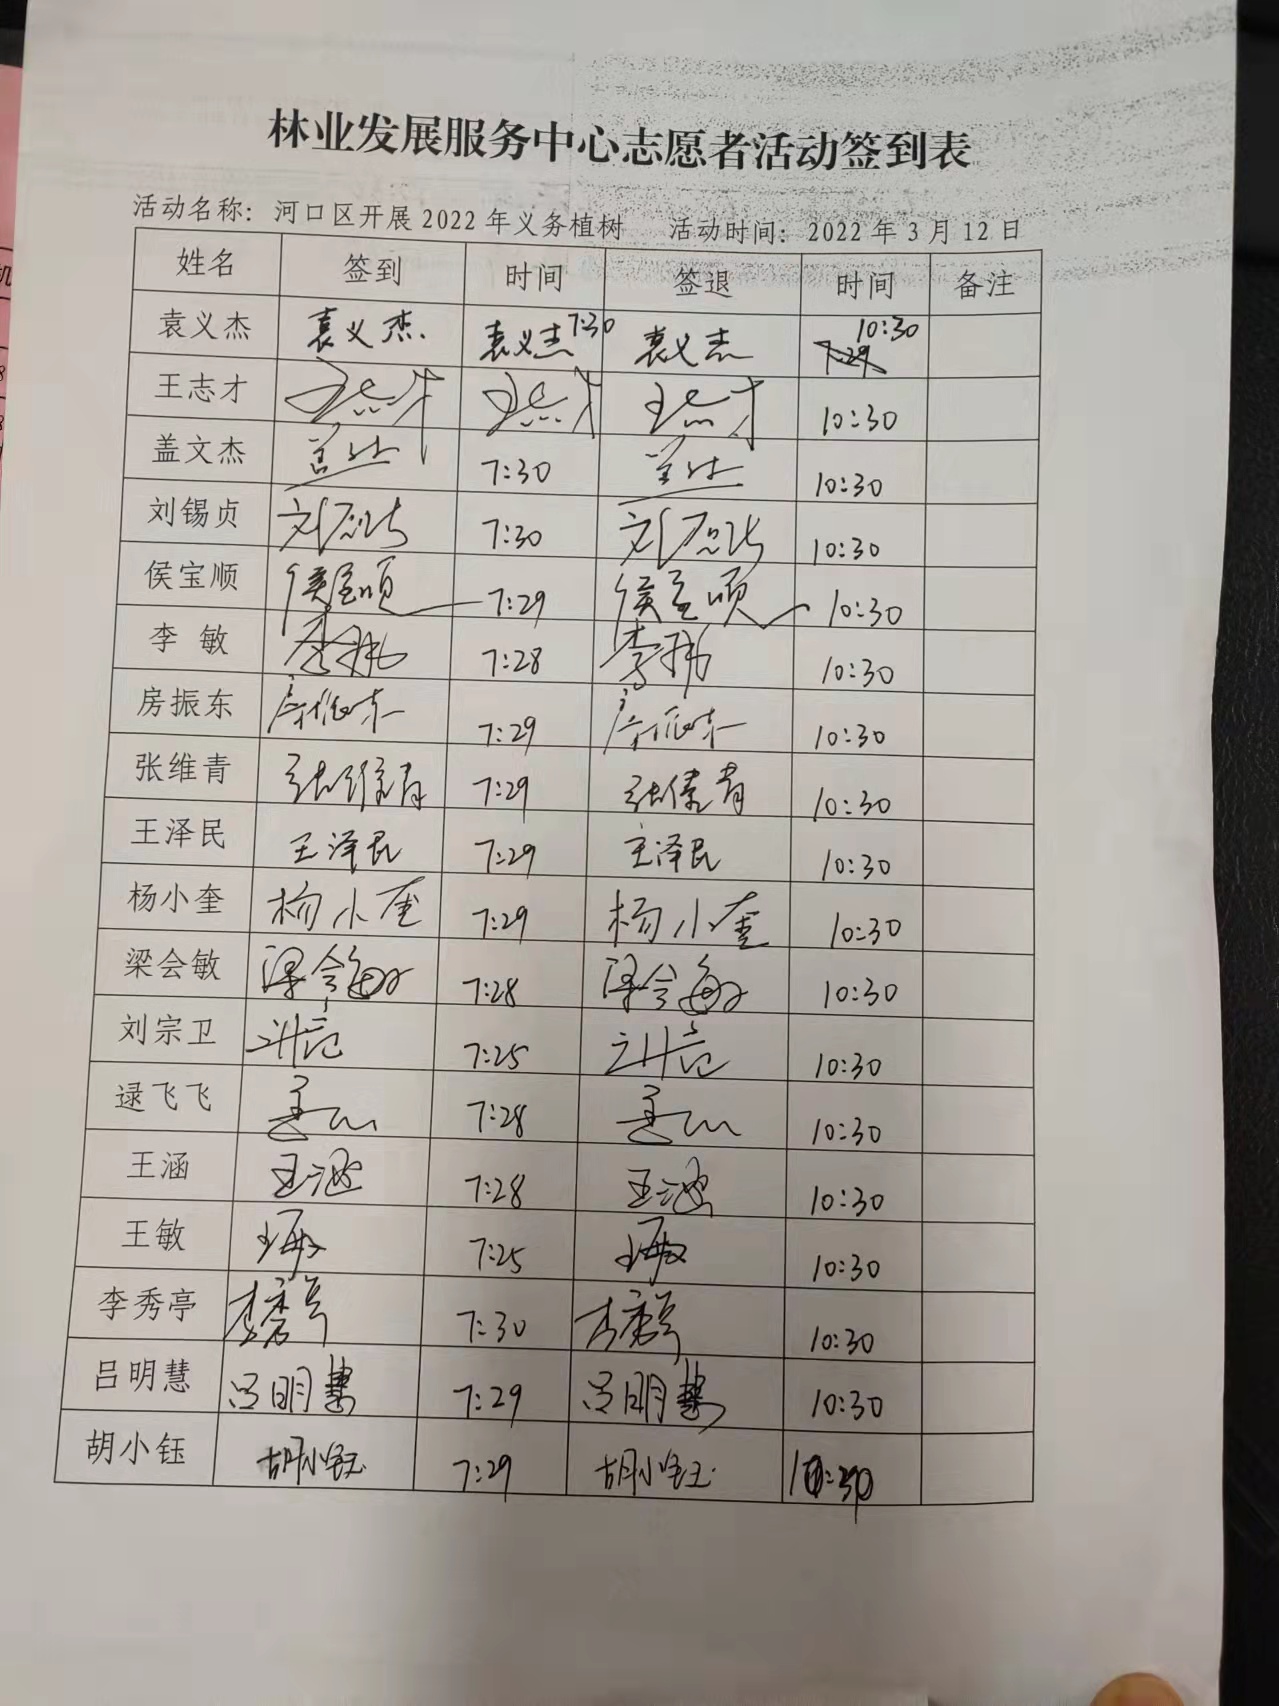 林业发展服务中心志愿者活动签到表
活动名称：河口区开展 2022 年义务植树 活动时间：2022 年 3 月 12 日
姓名 签到 时间 签退 时间 备注
袁义杰 袁义杰. 袁义杰 7:30 袁义杰 7:29 10:30
王志才 王志才 王志才 王志才 10:30
盖文杰 7:30 10:30
刘锡贞 7:30 10:30
侯宝顺 侯宝顺 7:29 侯宝顺 10:30
李 敏 李敏 7:28 李敏 10:30
房振东 房振东 7:29 房振东 10:30
张维青 张维青 7:29 张维青 10:30
王泽民 王泽民 7:29 王泽民 10:30
杨小奎 杨小奎 7:29 杨小奎 10:30
梁会敏 梁会敏 7:28 梁会敏 10:30
刘宗卫 7:25 10:30
逯飞飞 7:28 10:30
王涵 王涵 7:28 王涵 10:30
王敏 王敏 7:25 王敏 10:30
李秀亭 李秀亭 7:30 李秀亭 10:30
吕明慧 吕明慧 7:29 吕明慧 10:30
胡小钰 胡小钰 7:29 胡小钰 10:30